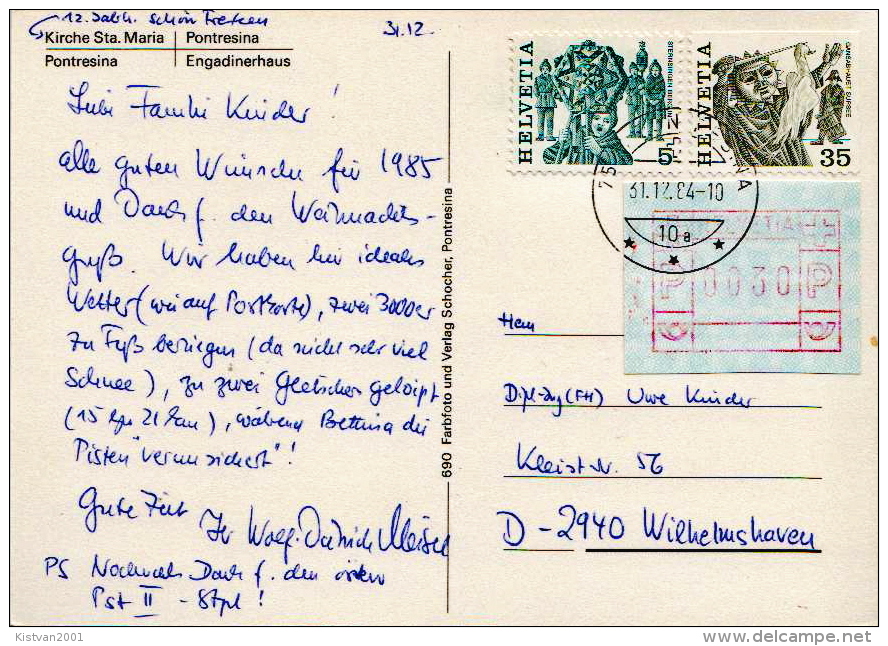 12. Jahrh. schön Fresken
31.12.
Kirche Sta. Maria
Pontresina
Pontresina
Engadinerhaus
Liebe Familie Kinder!
alle guten Wünsche für 1985
und Dank f. den Weihnachts-
gruß. Wir haben hier ideales
Wetter (wie auf Postkarte), zwei 3000er
zu Fuß bestiegen (da nicht sehr viel
Schnee), zu zwei Gletschern geloipt
(15 bzw 21 km), während Bettina die
Pisten "verunsichert"!
Gute Zeit
Ihr Wolf-Dietrich
PS Nochmals Dank f. den
Pst II - Stpl!
690 Farbfoto und Verlag Schocher, Pontresina
HELVETIA
STERNSINGEN BERGÜN
5
HELVETIA
GANSABHAUET SURSEE
35
31.12.84-10
10a
HELVETIA
P 0030 P
Herrn
Dipl-Ing (FH) Uwe Kinder
Kleiststr. 56
D - 2940 Wilhelmshaven
Kistvan2001
delcampe.net